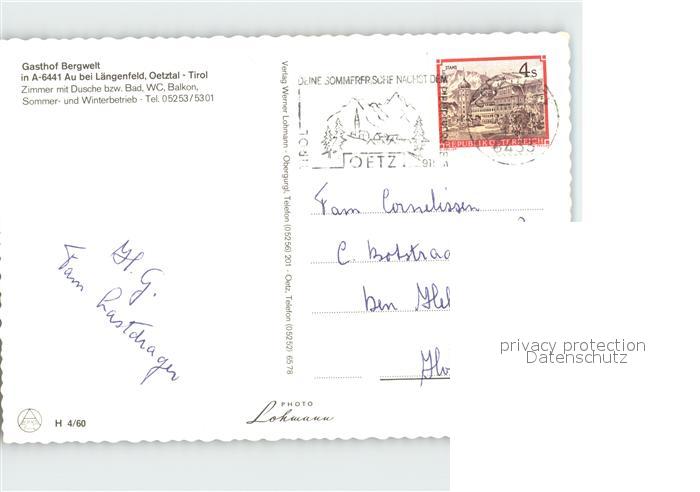 Gasthof Bergwelt
in A-6441 Au bei Längenfeld, Oetztal - Tirol
Zimmer mit Dusche bzw. Bad, WC, Balkon,
Sommer- und Winterbetrieb - Tel. 05253/5301
Verlag Werner Lohmann - Obergurgl, Telefon (05256) 201 - Oetz, Telefon (05252) 6578
DEINE SOMMERFRISCHE NÄCHST DEM
OETZ
STAMS
4 S
REPUBLIK ÖSTERREICH
6433
Fam Cornelissen
C. Botstraa
Den Hel
H.G.
Fam Lastdrager
PHOTO
Lohmann
H 4/60
privacy protection
Datenschutz